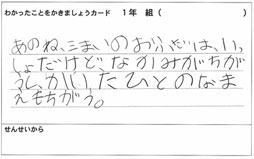 わかったことをかきましょうカード　１年　組（　　　　　）
あのね、こまいのおふだは、いっ
しょだけど、なかみがちが
うし、かいたひとのなま
えもちがう。
せんせいから